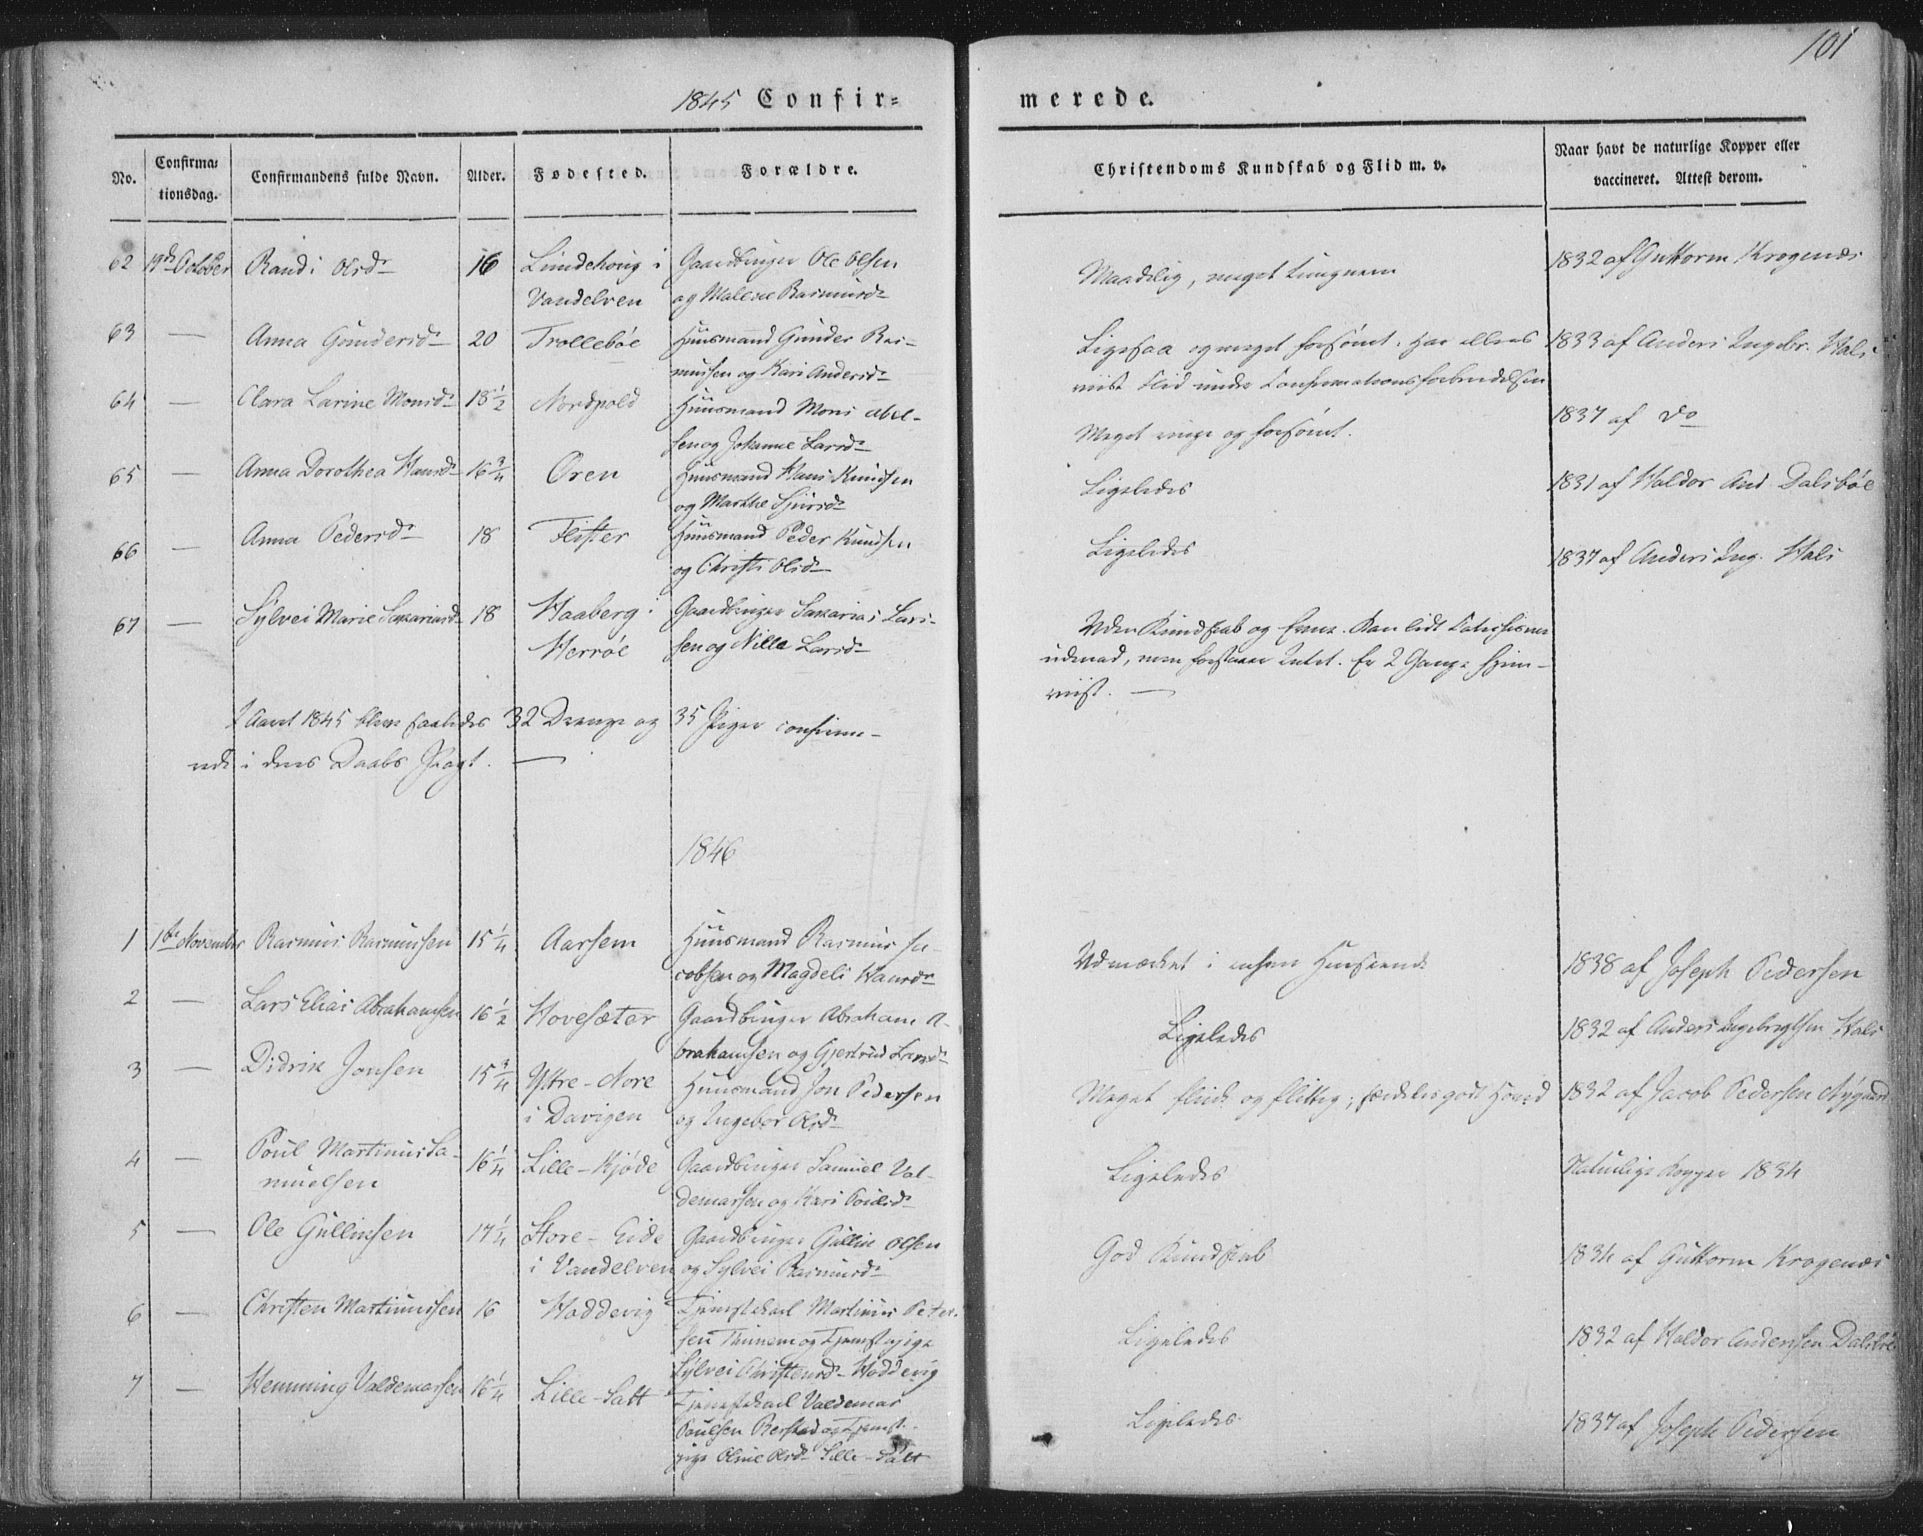 101
1845 Confir=
merede.
No.
Confirma=
tionsdag.
Confirmandens fulde Navn.
Alder.
Fødested.
Forældre.
Christendoms Kundskab og Flid m. v.
Naar havt de naturlige Kopper eller
vaccineret. Attest derom.
62 19de October Randi Olsdr 16 Lundehoug i Gaardbruger Ole Olsen
Vandelven og Malene Rasmusdr
Maadelig, meget tungnem
1832 af Guttorm Krogenæs
63 — Anna Gundersdr 20 Trollebøe Huusmand Gunder Ras-
mussen og Kari Andersdr
Ligesaa og meget forsömt. Har ellers
viist Flid under Confirmationsforberedelsen
1833 af Anders Ingebr. Hals
64 — Clara Larine Monsdr 18½ Nordpold Huusmand Mons Abel-
sen og Johanne Larsdr
Meget ringe og forsömt.
1837 af do
65 — Anna Dorothea Hansdr 16¾ Øren Huusmand Hans Knudsen
og Marthe Sjursdr
Ligeledes
1831 af Haldor And. Dalsbøe
66 — Anna Pedersdr 18 Flister Huusmand Peder Knudsen
og Christi Olsdr
Ligeledes
1837 af Anders Ing. Hals
67 — Sylvei Marie Sakariasdr 18 Haaberg i Gaardbruger Sakarias Lars-
Herrøe sen og Nille Larsdr
Uden Kundskab og Evne. Kan lidt Catechismen
udenad, men forstaaer Intet. Er 2 Gange hjem-
viist. —
I Aaret 1845 bleve saaledes 32 Drenge og 35 Piger confirme-
rede i deres Daabs Pagt. —
1846
1 1ste November Rasmus Rasmussen 15¼ Aarsem Huusmand Rasmus Ja-
cobsen og Magdeli Hansdr
Udmærket i enhver Henseende
1838 af Joseph Pedersen
2 — Lars Elias Abrahamsen 16½ Hovesæter Gaardbruger Abraham A-
brahamsen og Gjertrud Larsdr
Ligeledes
1832 af Anders Ingebregtsen Hals
3 — Didrik Jonsen 15¾ Yttre-Nore Huusmand Jon Pedersen
i Davigen og Ingebor Olsdr
Meget flink og flittig; særdeles godt Hoved
1832 af Jacob Pedersen Nygaard
4 — Poul Martinus Sa- 16¼ Lille-Kjøde Gaardbruger Samuel Val-
muelsen demarsen og Kari Poulsdr
Ligeledes
Naturlige Kopper 1834
5 — Ole Gullinsen 17¼ Store-Eide Gaardbruger Gullin Olsen
i Vandelven og Sylvei Rasmusdr
God Kundskab
1834 af Guttorm Krogenæs
6 — Christen Martinussen 16 Haddevig Tjenstekarl Martinus Peter-
sen Thinem og Tjenstepige
Sylvei Christensdr Haddevig
Ligeledes
1832 af Haldor Andersen Dalsbøe
7 — Hemming Valdemarsen 16¼ Lille-Satt Tjenstekarl Valdemar
Poulsen Berstad og Tjenst-
pige Oline Olsdr Lille-Satt
Ligeledes
1837 af Joseph Pedersen